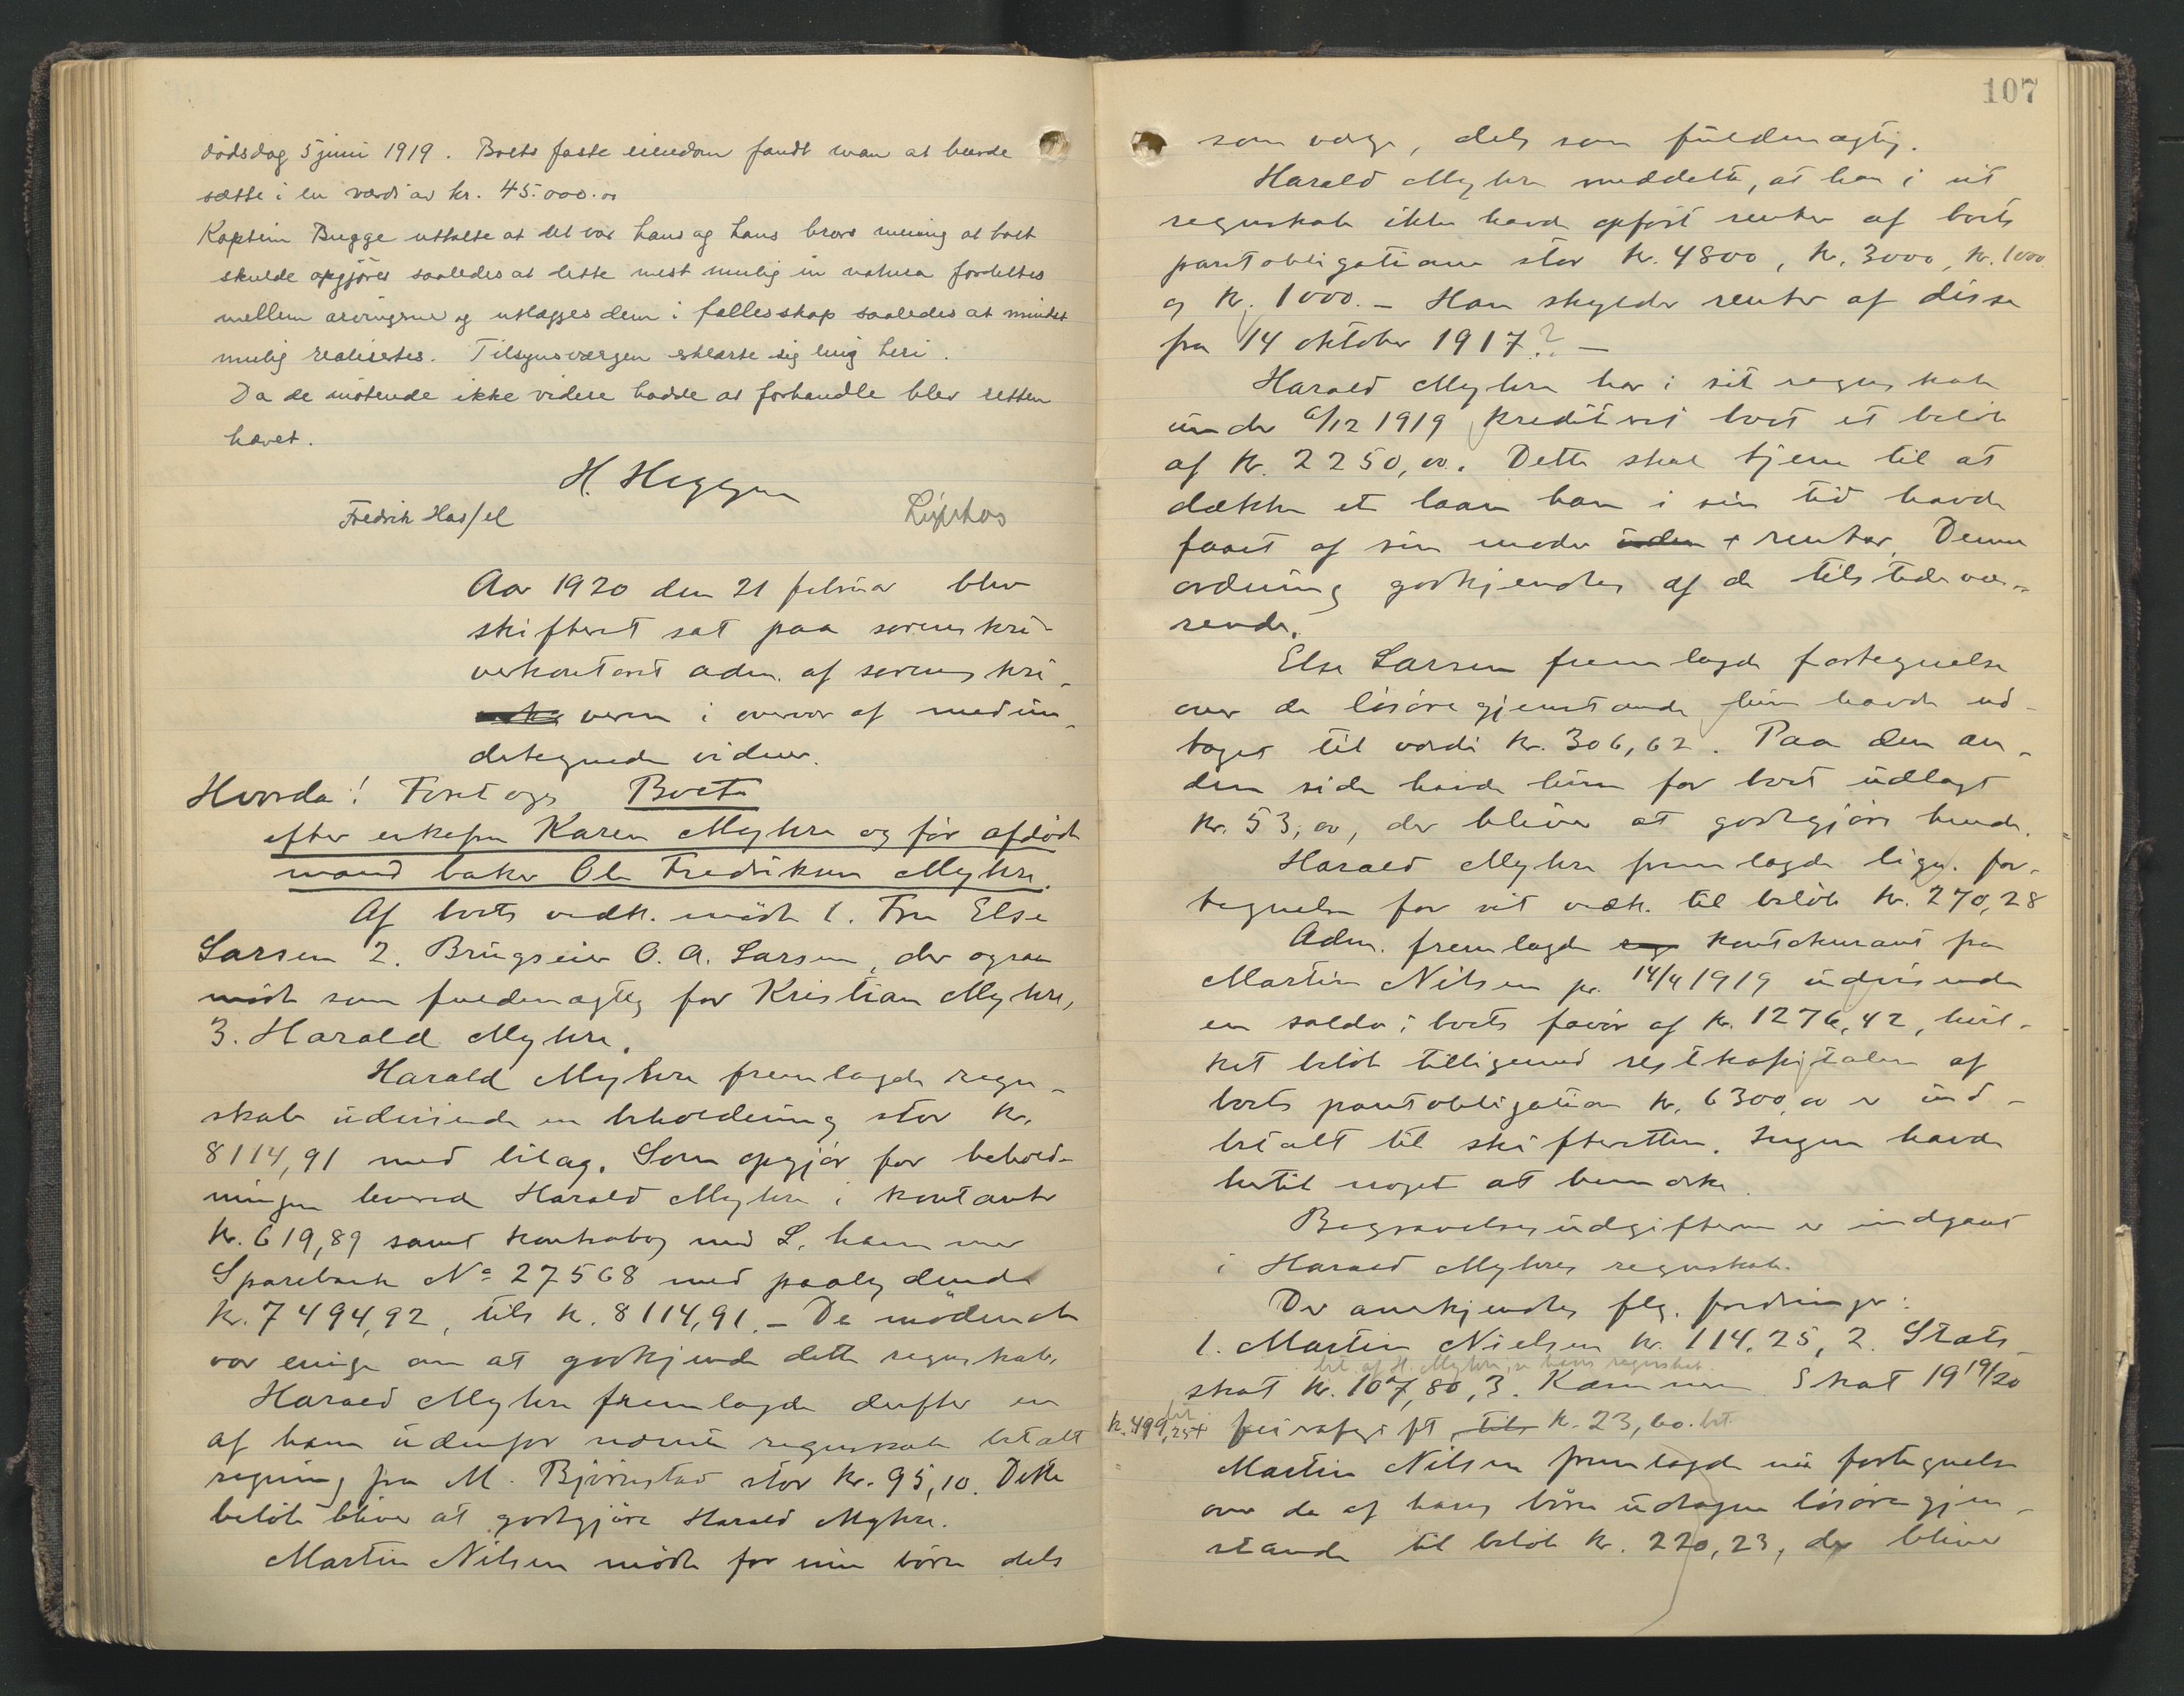 dødsdag 5 juni 1919. Boets faste eiendom fandt man at burde
sætte i en værdi av kr. 45.000.00
Kaptein Bugge uttalte at det var hans og hans brors mening at boet
skulde opgjöres saaledes at dette mest mulig in natura fordeltes
mellem arvingerne og utlægges dem i fællesskap saaledes at mindst
mulig realisertes. Tilsynsværgen erklærte sig enig heri.
Da de møtende ikke videre hadde at forhandle blev retten
hævet.
H. Heggen
Fredrik Hassel
Aar 1920 den 21 februar blev
skifteret sat paa sorenskri-
verkontoret adm. af sorenskri-
veren i overvær af medun-
dertegnede vidner.
Hvorda! Foretoges Boet
efter enkefru Karen Myhre og før afdøde
mand baker Ole Fredriksen Myhre.
Af boets vedk. mødte 1. Fru Else
Larsen 2. Brugseier O. A. Larsen, der ogsaa
mødte som fuldmægtig for Kristian Myhre,
3. Harald Myhre.
Harald Myhre fremlagde regn-
skab udvisende en beholdning stor kr.
8114,91 med bilag. Som opgjør for behold-
ningen leverede Harald Myhre i kontanter
kr. 619,89 samt kontrabog med L.hammer
Sparebank No 27568 med paalydende
kr. 7494,92, tils kr. 8114,91. - De mødende
var enige om at godkjende dette regnskab.
Harald Myhre fremlagde derefter en
af ham udenfor nævnte regnskab betalt
regning fra M. Bjørnstad stor kr. 95,10. Dette
beløb bliver at godtgjøre Harald Myhre.
Martin Nilsen mødte for sine børn dels
107
som værge, dels som fuldmægtig.
Harald Myhre meddelte, at han i sit
regnskab ikke havde opført renter af boets
pantobligationer stor kr. 4800, kr. 3000, kr. 1000
og kr. 1000. - Han skylder renter af disse
fra 14 oktober 1917? -
Harald Myhre har i sit regnskab
under 6/12 1919 krediteret boet et beløb
af kr. 2250,00. Dette skal tjene til at
dække et laan han i sin tid havde
faaet af sin moder uden + renter. Denne
ordning godkjendtes af de tilstedevæ-
rende.
Else Larsen fremlagde fortegnelse
over de løsøregjenstande hun havde ud-
taget til værdi kr. 306,62. Paa den an-
den side havde hun for boet udlagt
kr. 53,00, der bliver at godtgjøre hende.
Harald Myhre fremlagde lign. for-
tegnelse for sit vedk. til beløb kr. 270,28
Adm. fremlagde kontokurant fra
Martin Nilsen pr. 14/4 1919 udvisende
en saldo i boets favør af kr. 1276,42, hvil-
ket beløb tilligemed restkapitalen af
boets pantobligation kr. 6300,00 er ind-
betalt til skifteretten. Ingen havde
hertil noget at bemerke.
Begravelsesudgifterne er indgaaet
i Harald Myhres regnskab.
Der anerkjendtes flg. fordringer:
1. Martin Nielsen kr. 114,25, 2. Stats-
bet af H. Myhre, se hans regnskab.
skat kr. 107,80, 3. Kæmner Skat 1919/20
kr. 499,25 + bet feiravgift tils kr. 23,60. bet.
Martin Nilsen fremlagde nu fortegnelse
over de af hans børn udtagne løsøregjen-
stande til beløb kr. 220,23, der bliver